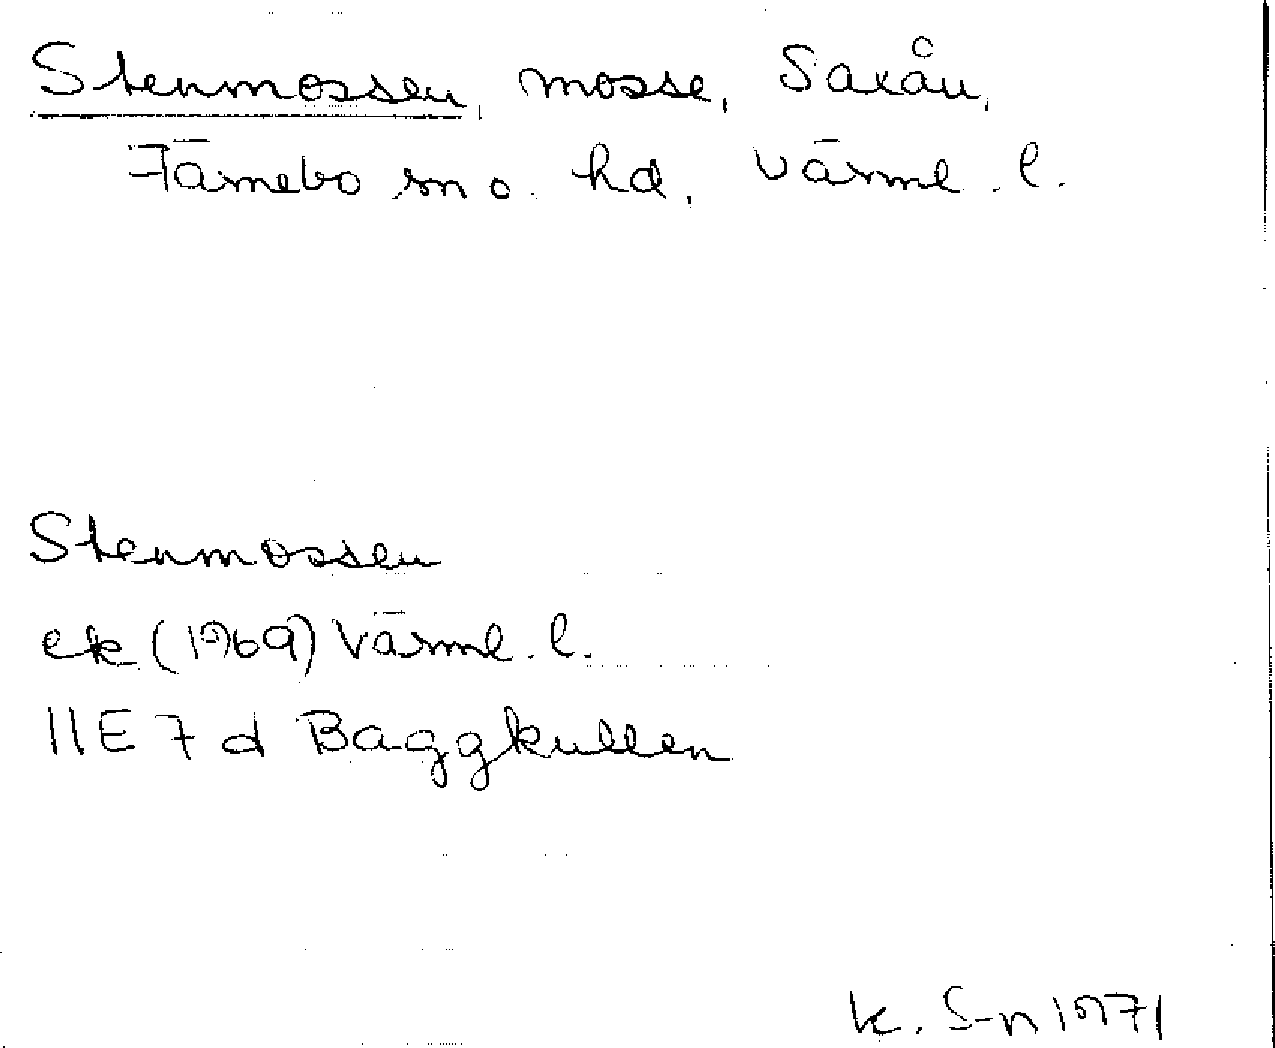 Stenmossen, mosse, Saxån,
Färnebo sn o. hd, Värml. l.
Stenmossen
ek (1969) Värml. l.
11E 7d Baggkullen
K. S-n 1971